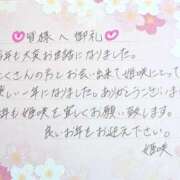 皆様へ御礼
今年も大変お世話になりました。
たくさんの方とお会い出来て姫咲にとって
い一年になりました。
年も姫咲を宜しくお願い致します。
良いお年をお迎え下さい。
姫咲